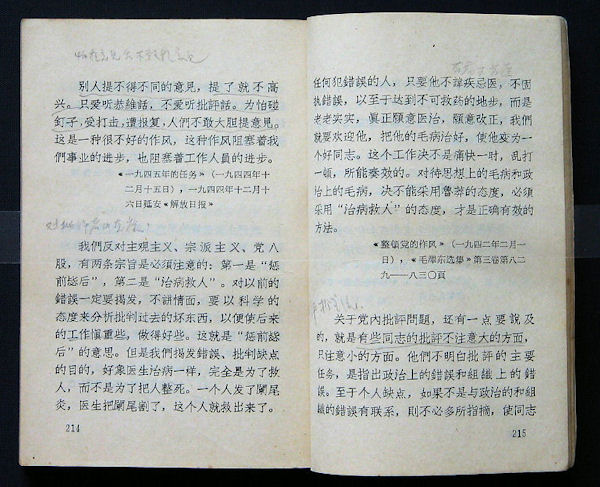 別人提不得不同的意見，提了就不高
兴。只爱听恭維話，不爱听批評話。为怕碰
釘子，受打击，遭报复，人們不敢大胆提意見。
这是一种很不好的作风，这种作风阻塞着我
們事业的进步，也阻塞着工作人員的进步。
“一九四五年的任务”（一九四四年十
二月十五日），一九四四年十二月十
六日延安“解放日报”
我們反对主观主义、宗派主义、党八
股，有两条宗旨是必須注意的：第一是“惩
前毖后”，第二是“治病救人”。对以前的
錯誤一定要揭发，不讲情面，要以科学的
态度来分析批判过去的坏东西，以便使后来
的工作愼重些，做得好些。这就是“惩前毖
后”的意思。但是我們揭发錯誤、批判缺点
的目的，好象医生治病一样，完全是为了救
人，而不是为了把人整死。一个人发了闌尾
炎，医生把闌尾割了，这个人就救出来了。
214
任何犯錯誤的人，只要他不諱疾忌医，不固
执錯誤，以至于达到不可救药的地步，而是
老老实实，眞正願意医治，願意改正，我們
就要欢迎他，把他的毛病治好，使他变为一
个好同志。这个工作决不是痛快一时，乱打
一頓，所能奏效的。对待思想上的毛病和政
治上的毛病，决不能采用魯莽的态度，必須
采用“治病救人”的态度，才是正确有效的
方法。
“整頓党的作风”（一九四二年二月一
日），“毛澤东选集”第三卷第八二
九—八三〇頁
关于党內批評問題，还有一点要說及
的，就是有些同志的批評不注意大的方面，
只注意小的方面。他們不明白批評的主要
任务，是指出政治上的錯誤和組織上的錯
誤。至于个人缺点，如果不是与政治的和組
織的錯誤有联系，則不必多所指摘，使同志
215